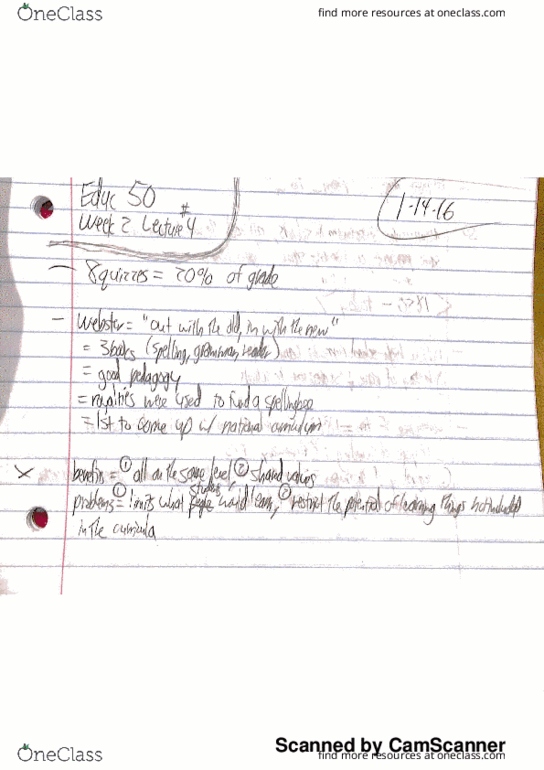 OneClass
find more resources at oneclass.com
Educ 50
Week 2 Lecture #4
1-14-16
— 8 quizzes = 20% of grade
— Webster = "out with the old, in with the new"
= 3 books (spelling, grammar, reader)
= good pedagogy
= royalities were used to fund a spellingbee
= 1st to come up w/ national curriculum
× benefits = ① all on the same level, ② shared values
problems = ① limits what students would learn, ② restrict the potential of learning things not included
in the curricula
Scanned by CamScanner
OneClass
find more resources at oneclass.com